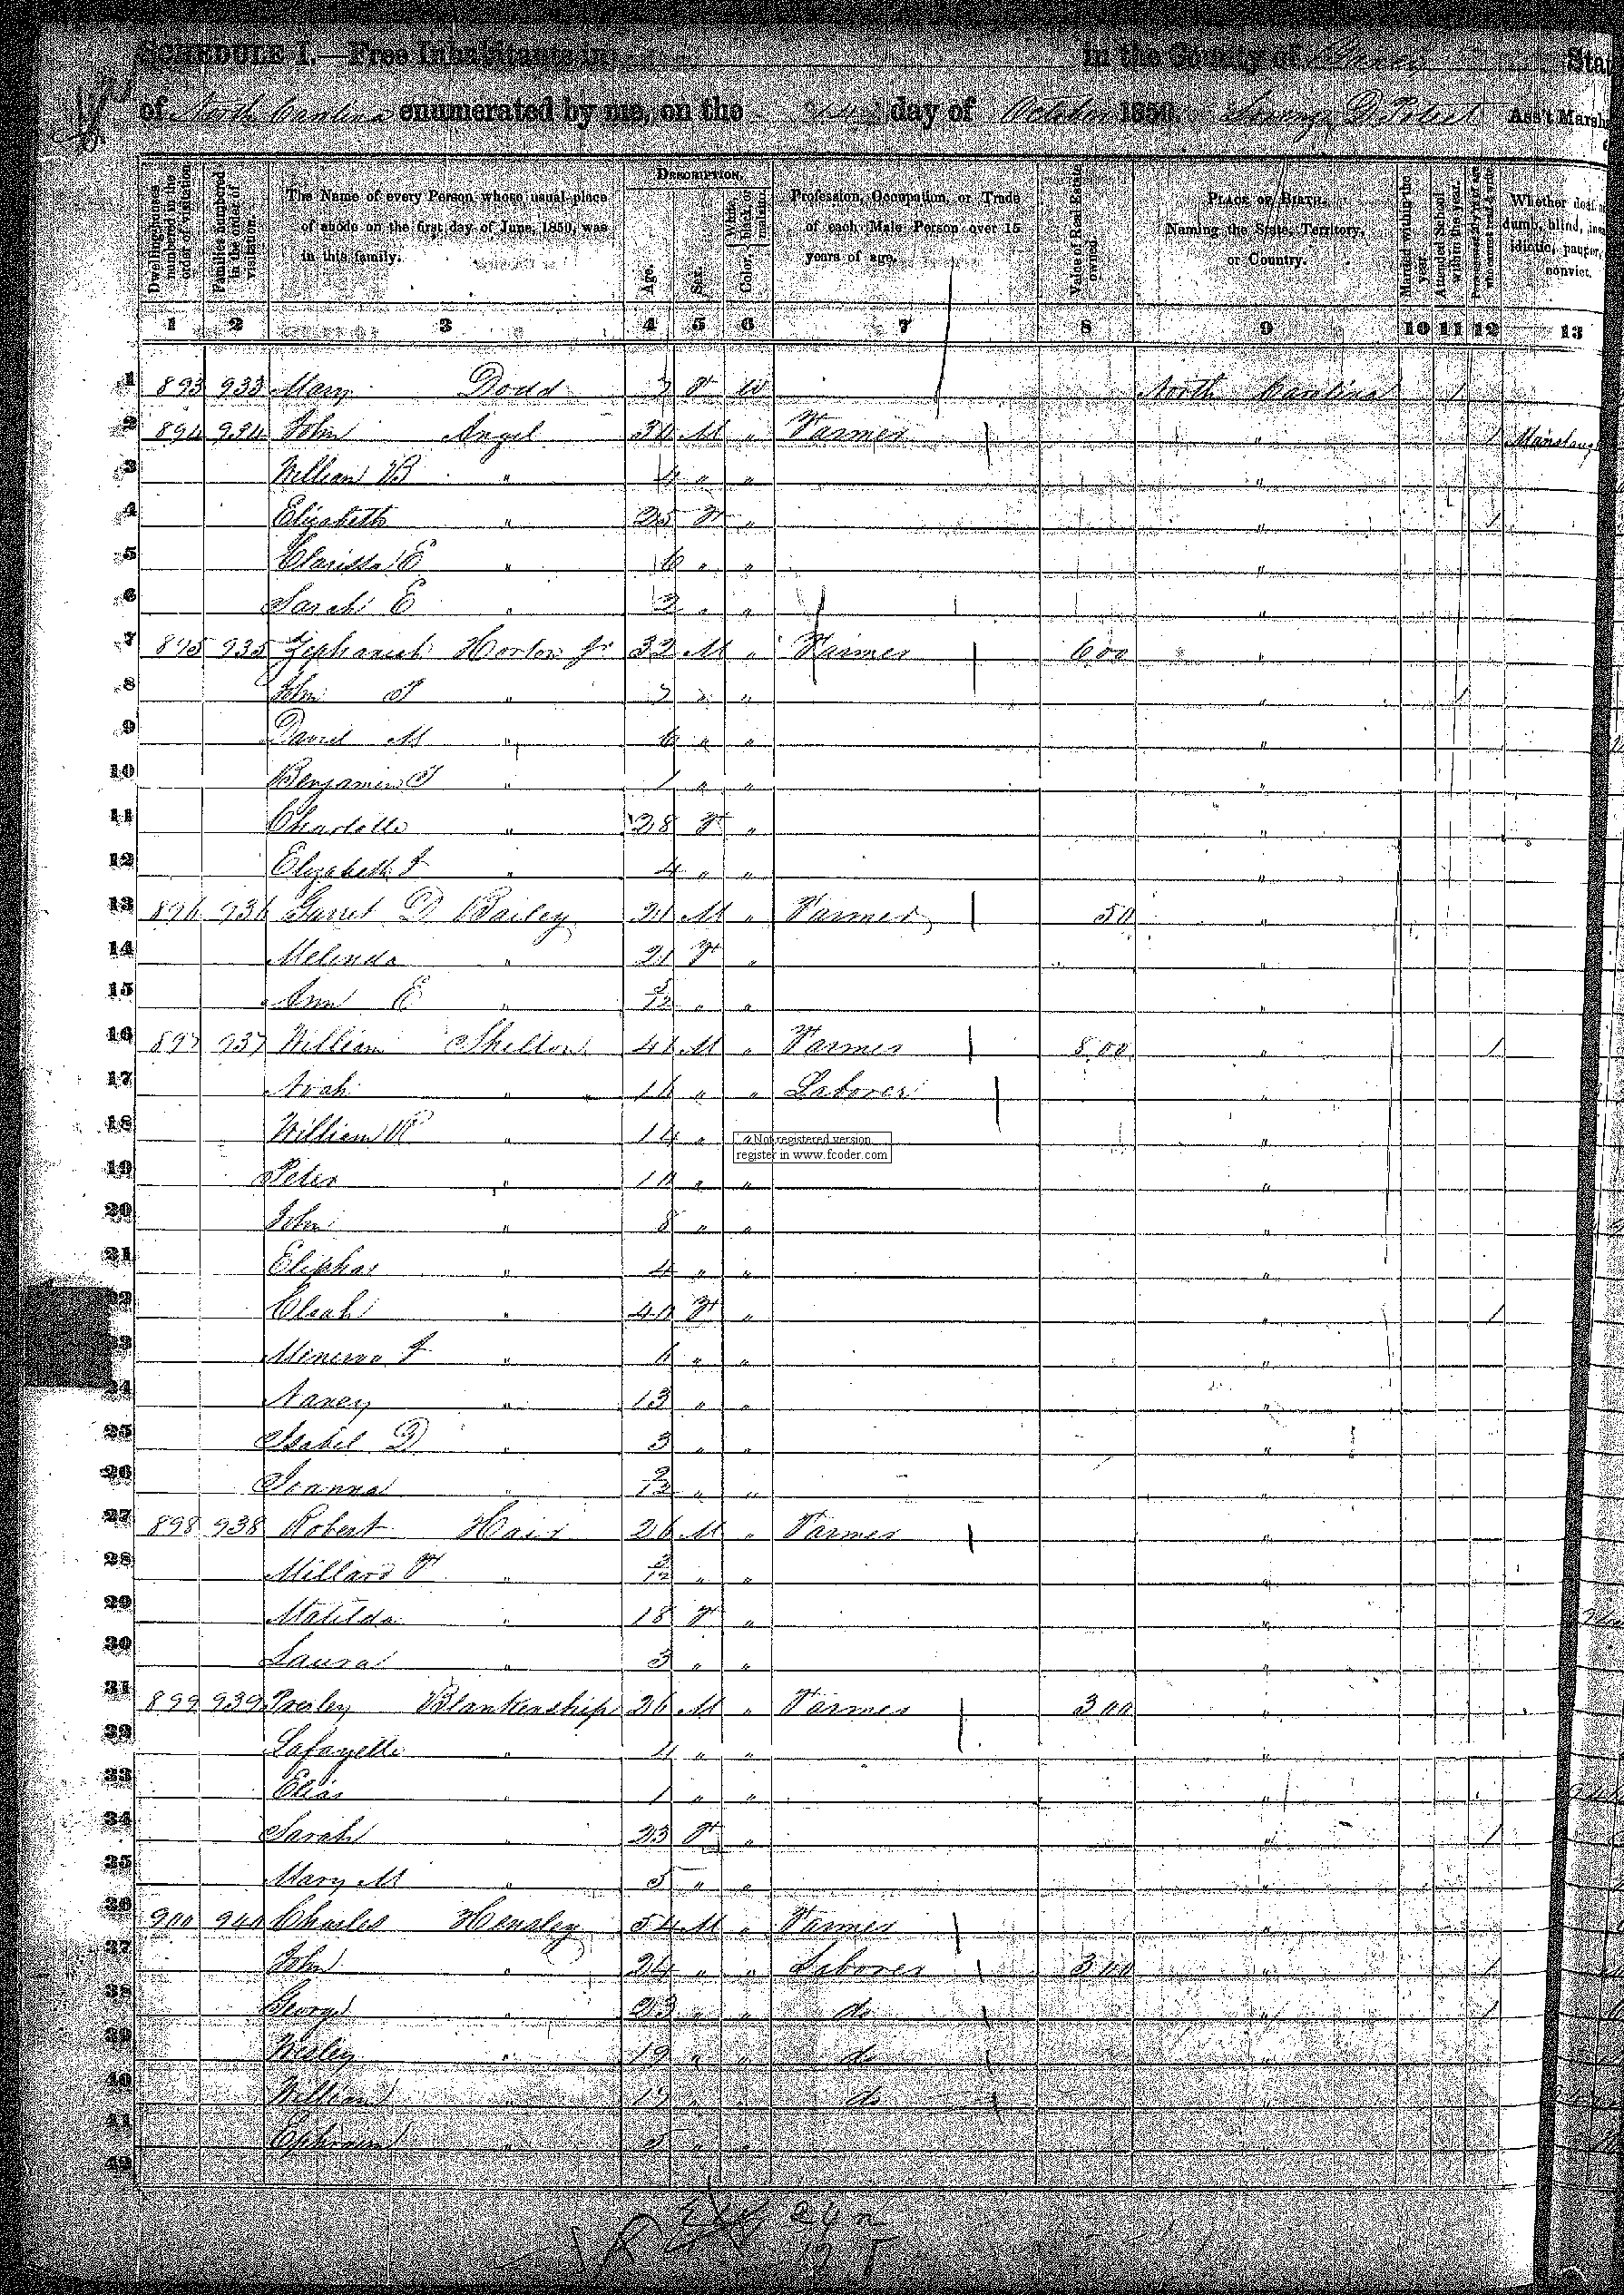 SCHEDULE I.—Free Inhabitants in in the County of Stat
of North Carolina enumerated by me, on the 24 day of October 1850. Ass't Marsha
Dwelling-houses numbered in the order of visitation.
Families numbered in the order of visitation.
The Name of every Person whose usual place of abode on the first day of June, 1850, was in this family.
DESCRIPTION.
Age.
Sex.
Color, White, black, or mulatto.
Profession, Occupation, or Trade of each Male Person over 15 years of age.
Value of Real Estate owned.
PLACE OF BIRTH. Naming the State, Territory, or Country.
Married within the year.
Attended School within the year.
Persons over 20 y'rs of age who cannot read & write.
Whether deaf and dumb, blind, insane, idiotic, pauper, or convict.
1 2 3 4 5 6 7 8 9 10 11 12 13
1 893 933 Mary Dodd 7 F W North Carolina 1
2 894 934 John Angel 30 M " Farmer " 1 Manslaug
3 William B " 4 " " "
4 Elizabeth " 25 F " " 1
5 Clarissa E " 6 " " "
6 Sarah E " 2 " " "
7 895 935 Zephaniah Horton Jr 32 M " Farmer 600 "
8 John " 7 " " 1
9 David M " 6 " " "
10 Benjamin " 1 " " "
11 Charlotte " 28 F " "
12 Elizabeth " 4 " " "
13 896 936 Garret D Bailey 21 M " Farmer 50 "
14 Melinda " 21 F " "
15 Ann E " 5/12 " " "
16 897 937 William Shelton 41 M " Farmer 800 " 1
17 Noah " 16 " " Laborer "
18 William R " 14 " " "
Not registered version
register in www.fcoder.com
19 Peter " 10 " " "
20 John " 8 " " "
21 Eliphas " 4 " " "
22 " 40 F " " 1
23 Minerva " 6 " " "
24 Nancy " 13 " " "
25 Isabel D " 3 " " "
26 " 2/12 " " "
27 898 938 Robert Hair 26 M " Farmer "
28 Millard F " 3/12 " " "
29 Matilda " 18 F " "
30 Laura " 3 " " "
31 899 939 Presley Blankenship 26 M " Farmer 300 "
32 Lafayette " 4 " " "
33 Elias " 1 " " "
34 Sarah " 23 F " " 1
35 Mary M " 5 " " "
36 900 940 Charles Hensley 54 M " Farmer "
37 John " 24 " " Laborer 300 " 1
38 George " 23 " " do " 1
39 Wesley " 19 " " do "
40 William " 17 " " do "
41 Ephraim " 5 " " "
42